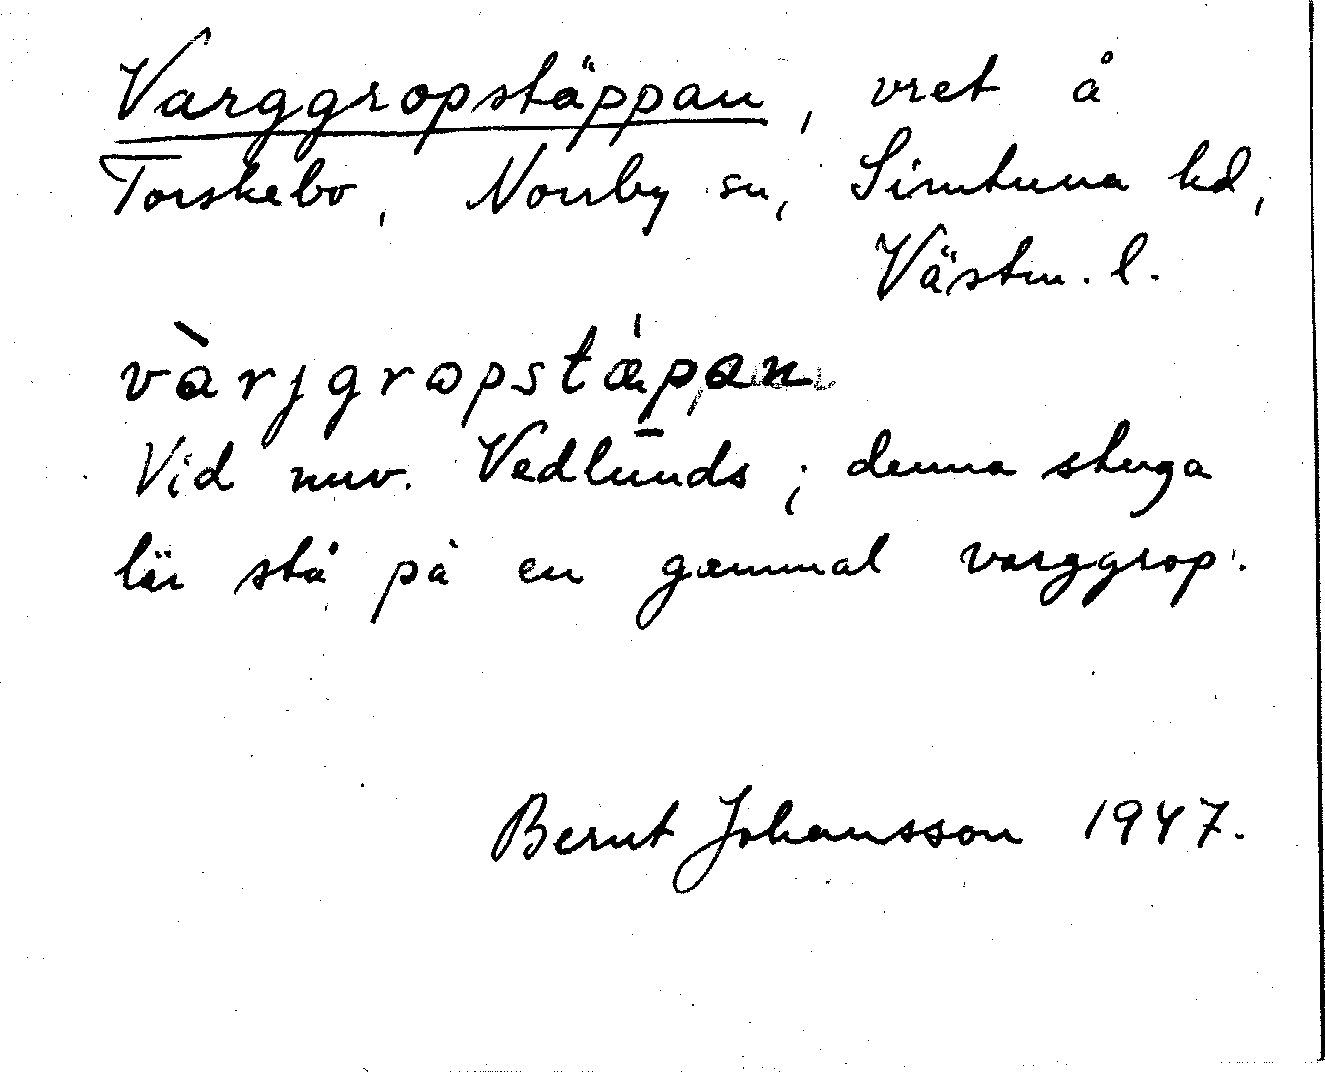 Varggropstäppan, vret å
Torskebo, Norrby sn, Simtuna hd,
Västm. l.
vàrjgrɷpstæ̍pan
Vid nuv. Vedlunds; denna stuga
lär stå på en gammal varggrop.
Bernt Johansson 1947.